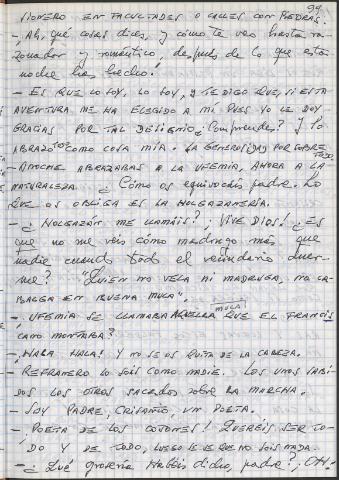 94
MONERO EN FACULTADES O CALLES CON PIEDRAS.
- ¡Ah!, qué cosas dices, y cómo te veo hasta ra-
zonador y romántico, después de lo que esta
noche has hecho.
- ES QUE LO SOY, LO SOY, Y TE DIGO QUE, SI ESTA
AVENTURA ME HA ELEGIDO A MÍ PUES YO LE DOY
GRACIAS POR TAL DESIGNIO, ¿Comprendes? Y LO
ABRAZO COMO COSA MÍA. LA GENEROSIDAD POR SOBRE
TODO.
- ANOCHE ABRAZABAS A LA UFEMIA, AHORA A LA
NATURALEZA. ¿Cómo os equivocáis padre. LO
QUE OS OBLIGA ES LA HOLGAZANERÍA.
- ¿HOLGAZÁN ME LLAMÁIS?, ¡VIVE DIOS! ¿ES
que no me veis cómo madrugo más que
nadie cuando todo el vecindario duer-
me? "QUIEN NO VELA NI MADRUGA, NO CA-
BALGA EN BUENA MULA".
MULA!
- ¿UFEMIA SE LLAMABA AQUELLA QUE EL FRANCIS
CANO MONTABA?
- ¡HALA HALA! Y NO SE OS QUITA DE LA CABEZA.
- REFRANERO LO SOIS COMO NADIE. LOS UNOS SABI-
DOS LOS OTROS SACADOS sobre LA MARCHA.
- SOY PADRE, CRISANTO, UN POETA.
- ¡POETA DE LOS COJONES! QUERÉIS SER TO-
DO Y DE TODO, LUEGO SE VE QUE NO SOIS NADA.
- ¿Qué grosería Habéis dicho, padre?, OH-